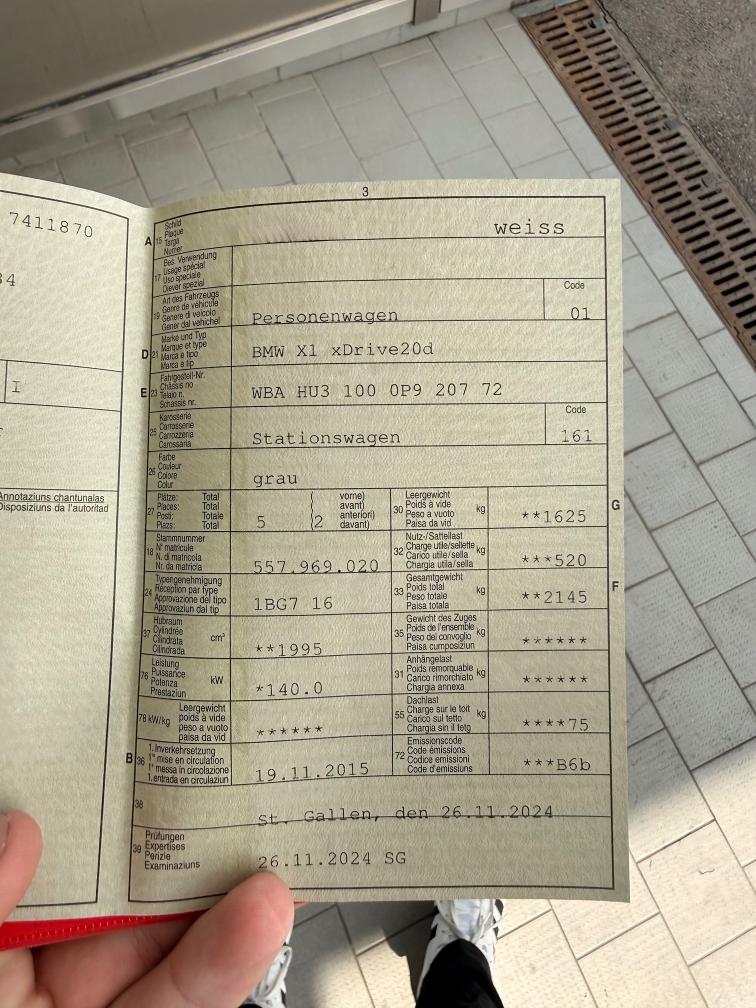 3
7411870
34
I
Annotaziuns chantunalas
Disposiziuns da l'autoritad
A 15 Schild
Plaque
Targa
Numer
weiss
17 Bes. Verwendung
Usage spécial
Uso speciale
Diever spezial
19 Art des Fahrzeugs
Genre de véhicule
Genere di veicolo
Gener dal vehichel
Personenwagen
Code
01
D 21 Marke und Typ
Marque et type
Marca e tipo
Marca e tip
BMW X1 xDrive20d
E 23 Fahrgestell-Nr.
Châssis no
Telaio n.
Schassis nr.
WBA HU3 100 0P9 207 72
25 Karosserie
Carrosserie
Carrozzeria
Carossaria
Stationswagen
Code
161
26 Farbe
Couleur
Colore
Colur
grau
27 Plätze: Total
Places: Total
Posti: Totale
Plazs: Total
5
vorne)
avant)
anteriori)
davant)
(2
30 Leergewicht
Poids à vide
Peso a vuoto
Paisa da vid
kg
**1625
G
18 Stammnummer
N° matricule
N. di matricola
Nr. da matricla
557.969.020
32 Nutz-/Sattellast
Charge utile/sellette
Carico utile/sella
Chargia utila/sella
kg
***520
24 Typengenehmigung
Réception par type
Approvazione del tipo
Approvaziun dal tip
1BG7 16
33 Gesamtgewicht
Poids total
Peso totale
Paisa totala
kg
**2145
F
37 Hubraum
Cylindrée
Cilindrata
Cilindrada
cm³
**1995
35 Gewicht des Zuges
Poids de l'ensemble
Peso del convoglio
Paisa cumposiziun
kg
******
76 Leistung
Puissance
Potenza
Prestaziun
kW
*140.0
31 Anhängelast
Poids remorquable
Carico rimorchiato
Chargia annexa
kg
******
78 kW/kg
Leergewicht
poids à vide
peso a vuoto
paisa da vid
******
55 Dachlast
Charge sur le toit
Carico sul tetto
Chargia sin il tetg
kg
****75
B 36 1. Inverkehrsetzung
1re mise en circulation
1a messa in circolazione
1. entrada en circulaziun
19.11.2015
72 Emissionscode
Code émissions
Codice emissioni
Code d'emissiuns
***B6b
38
St. Gallen, den 26.11.2024
39 Prüfungen
Expertises
Perizie
Examinaziuns
26.11.2024 SG